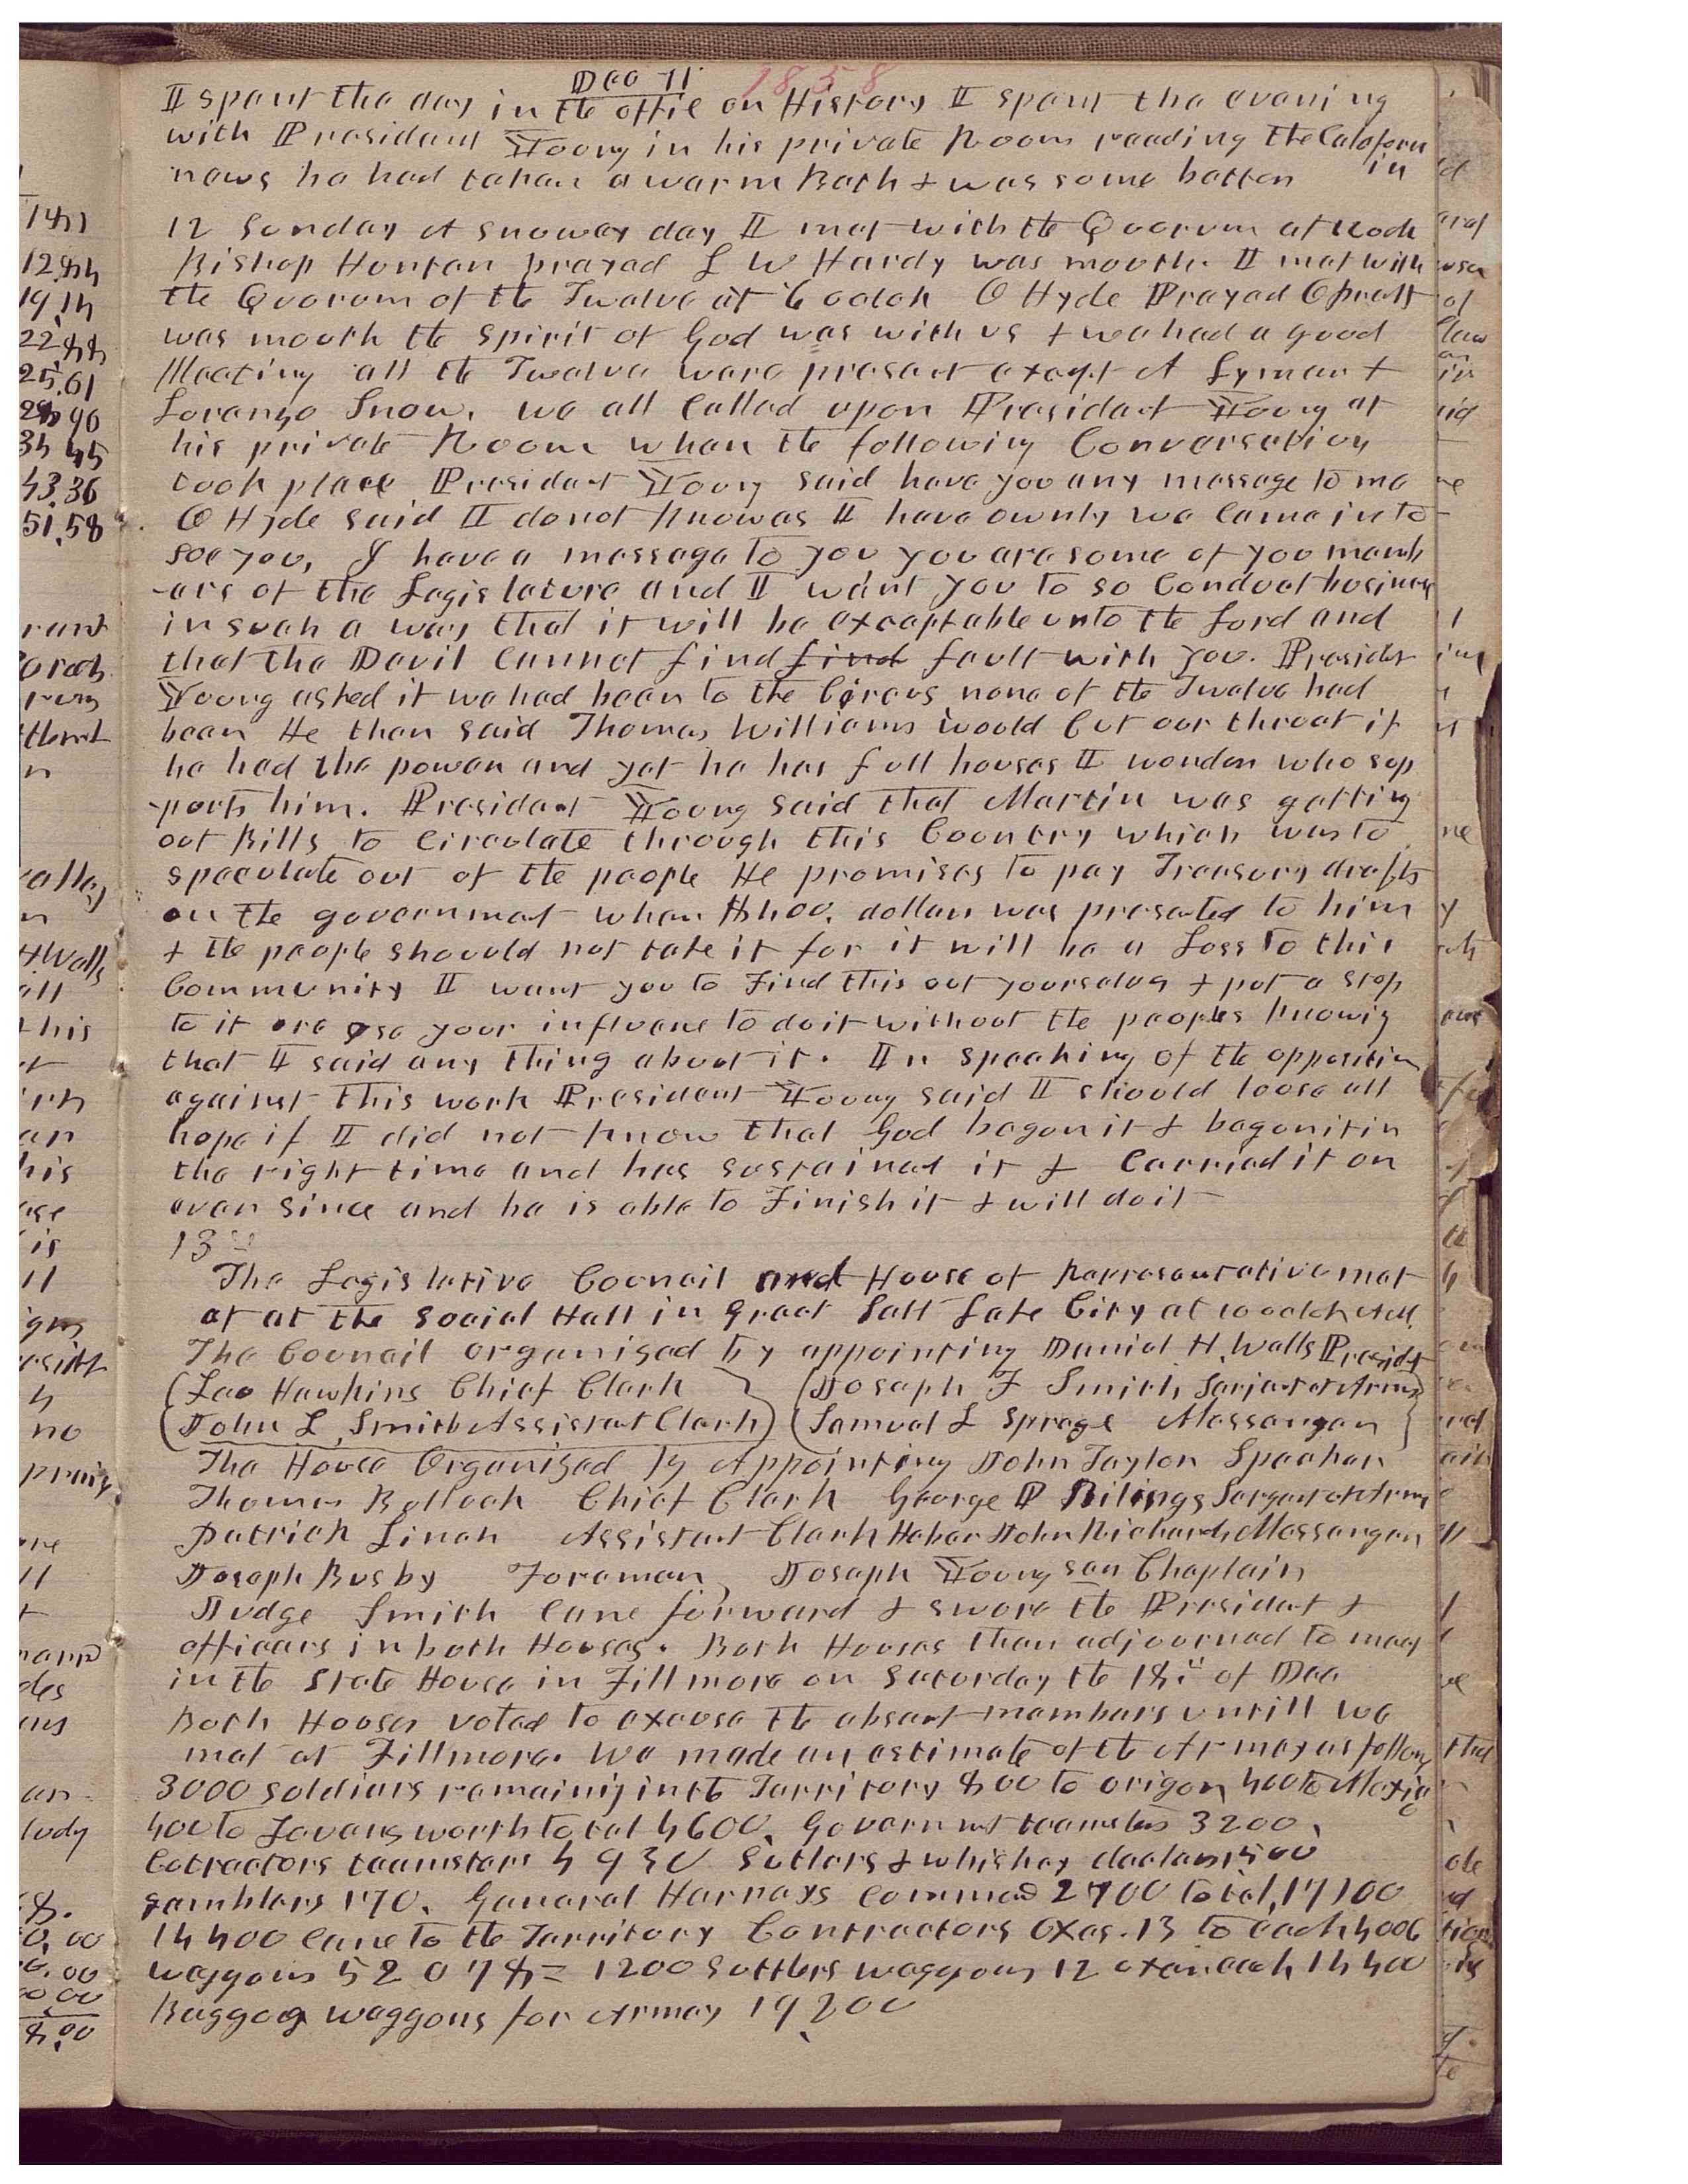 Dec 11 1858
I spent the day in the offie on History I spent the evening
with President Young in his private Room reading the Calaforn
news he had taken a warm Bath & was some better in
12 Sunday A snowey day I met with the Quorum at
Bishop Hunter prayed L W Hardy was mouth. I met with
the Quorum of the Twelve at 6 oclok O Hyde Prayed O pratt
was mouth the spirit of God was with us & we had a good
Meeting all the Twelve were present except A Lyman &
Lorenzo Snow. we all Called upon President Young at
his private Room when the following Conversation
took place President Young said have you any message to me
O Hyde said I do not know as I have ownly we Came in to
see you, I have a message to you you are some of you memb
-ers of the Legislature and I want you to so Conduct business
in such a way that it will be exceptable unto the Lord and
that the Devil Cannot find find fault with you. Presidet
Young asked if we had been to the Circus none of the Twelve had
been He then said Thomas Williams would Cut our throat if
he had the power and yet he has full houses I wonder who sup
-ports him. President Young said that Martin was getting
out Bills to Circulate through this Country which was to
speculate out of the people He promises to pay Treasury drafts
on the governmet when $400. dollars was presented to him
& the people shouuld not take it for it will be a Loss to this
Community I want you to Find this out yourselves & put a stop
to it use your influene to do it without the peoples knowig
that I said any thing about it. In speaking of the opposition
against this work President Young said I should loose all
hope if I did not know that God began it & began it in
the right time and has sustained it & Carried it on
ever since and he is able to Finish it & will do it
13
The Legislative Council and House of Representative met
at at the Social Hall in Great Salt Lake City at 10 oclok AM.
The Council organised by appointing Daniel H. Wells Presidt
(Leo Hawkins Chief Clerk } (Joseph F Smith, Sarjant at Arms}
(John L, Smith Assistat Clerk) (Samuel L Sprage Messenger }
The House Organized by Appointing John Taylor Speaker
Thomas Bullock Chief Clerk George P Bilings Sargent at Arms
Patrick Linch Assistant Clerk Heber John Richards Messenger
Joseph Busby Foreman, Joseph Young sen Chaplain
Judge Smith Came forward & swore the President &
officers in both Houses. Both Houses then adjourned to meet
in the State House in Fillmore on Saturday the 18" of Dec
Both Houses voted to excuse the absent members untill we
met at Fillmore. We made an estimate of the Armey as follows
3000 soldiers remainij in the Territory 800 to origon 400 to Mexico
400 to Levensworth total 4600, Governmt teamsters 3200,
Cotractors teamsters 4930 Sutlers & whiskey dealers 1500
gamblers 170. General Harneys Commad 2700 total, 17100
14400 Came to the Territory Contractors oxes. 13 to each 4006
waggons 52078= 1200 Suttlers waggons 12 oxen each 14400
Baggag waggons for Armey 19200